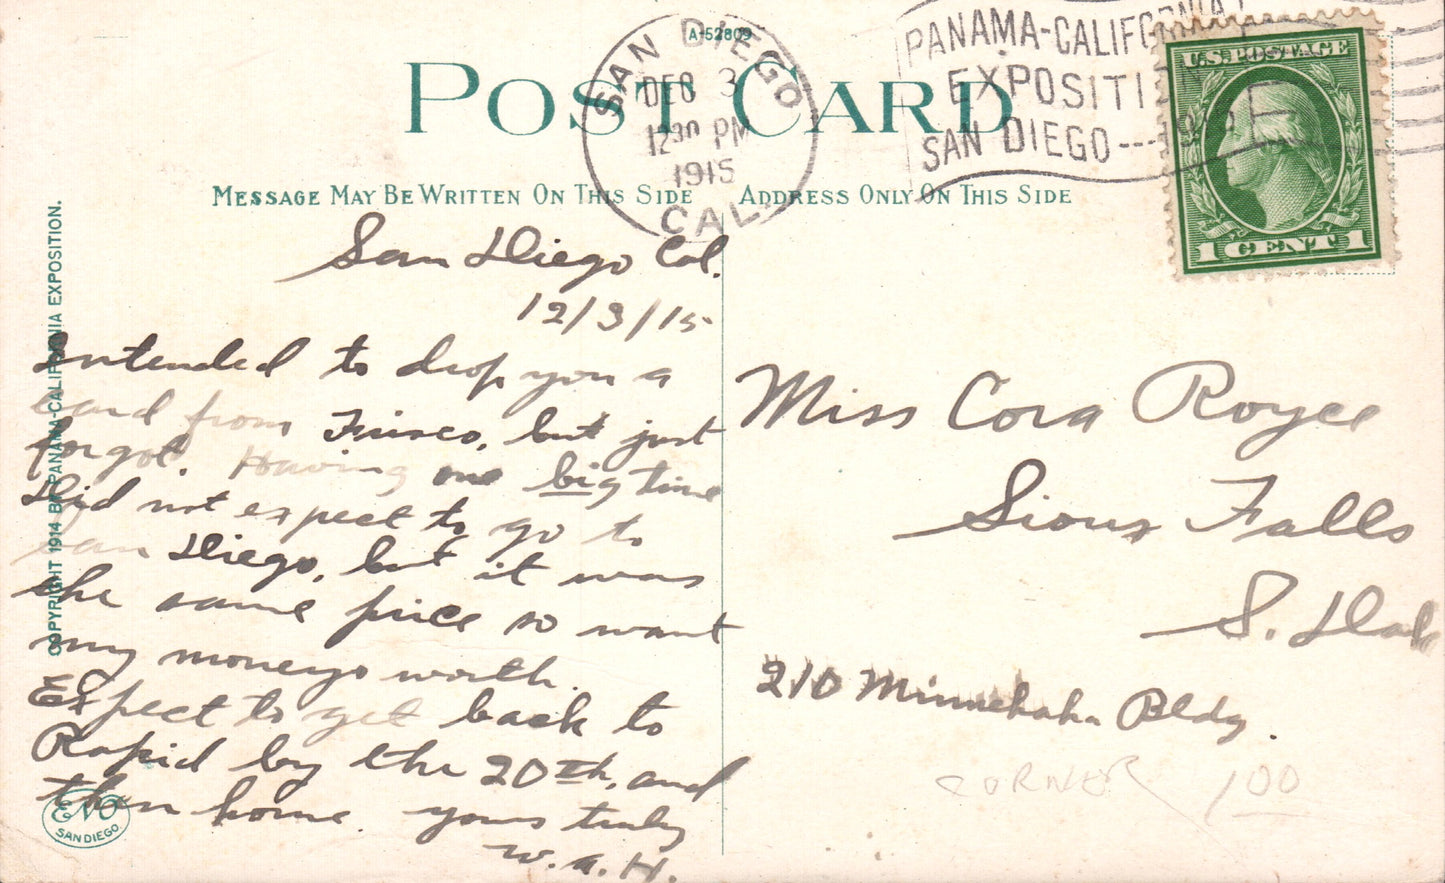 A-52809
POST CARD
SAN DIEGO
DEC 3
12 30 PM
1915
CAL.
PANAMA-CALIFORNIA
EXPOSITION
SAN DIEGO---1915
U.S. POSTAGE
1 CENT 1
MESSAGE MAY BE WRITTEN ON THIS SIDE
ADDRESS ONLY ON THIS SIDE
COPYRIGHT 1914 BY PANAMA-CALIFORNIA EXPOSITION.
San Diego Cal.
12/3/15
Intended to drop you a
card from Frisco, but just
forgot. Having one big time
Did not expect to go to
San Diego, but it was
the same price so want
my moneys worth.
Expect to get back to
Rapid by the 20th, and
then home. yours truly
W.A.H.
ENO
SAN DIEGO.
Miss Cora Royce
Sioux Falls
S. Dak
210 Minnehaha Bldg.
CORNER 100